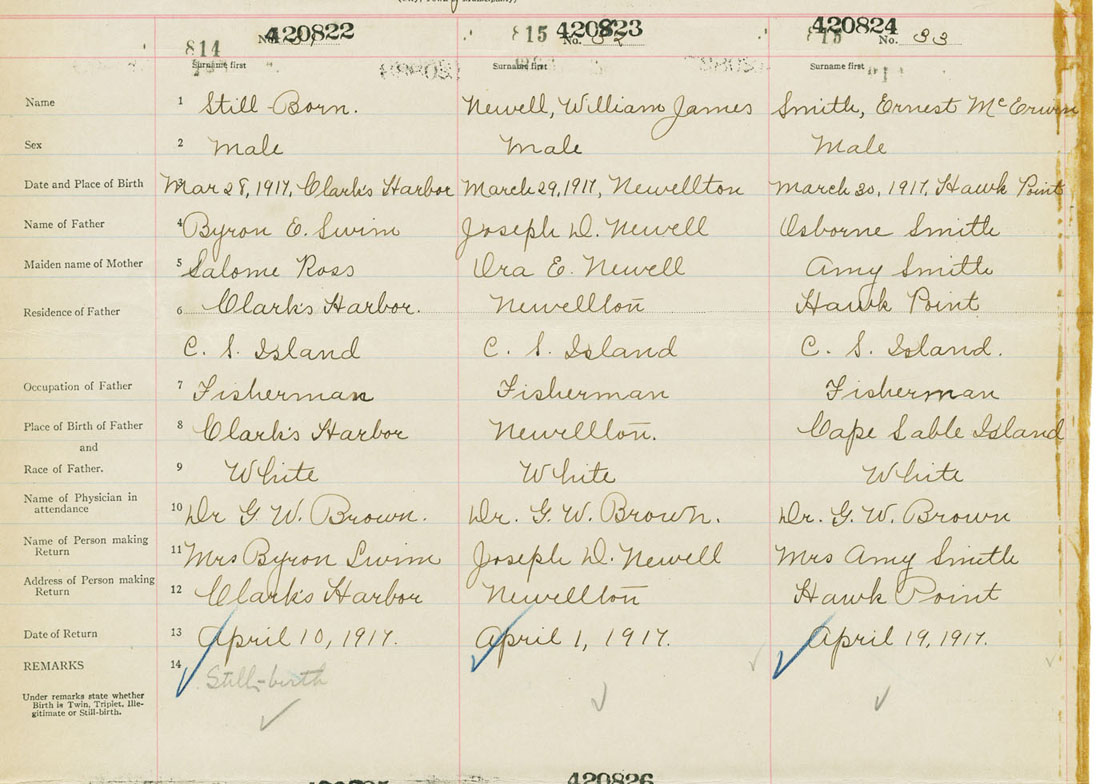 420822 420823 420824
814 No. 815 No. 815 No. 33
Surname first Surname first Surname first
Name 1 Still-Born. Newell, William James Smith, Ernest McErwin
Sex 2 Male Male Male
Date and Place of Birth Mar 28, 1917, Clark's Harbor March 29, 1917, Newellton March 30, 1917, Hawk Point
Name of Father 4 Byron E. Swim Joseph D. Newell Osborne Smith
Maiden name of Mother 5 Salome Ross Ora E. Newell Amy Smith
Residence of Father 6 Clark's Harbor. Newellton Hawk Point
C. S. Island C. S. Island C. S. Island.
Occupation of Father 7 Fisherman Fisherman Fisherman
Place of Birth of Father 8 Clark's Harbor Newellton. Cape Sable Island
and
Race of Father. 9 White White White
Name of Physician in
attendance 10 Dr G. W. Brown. Dr. G. W. Brown. Dr. G. W. Brown
Name of Person making
Return 11 Mrs Byron Swim Joseph D. Newell Mrs Amy Smith
Address of Person making
Return 12 Clark's Harbor Newellton Hawk Point
Date of Return 13 April 10, 1917. April 1, 1917. April 19, 1917.
REMARKS 14 Still-birth
Under remarks state whether
Birth is Twin, Triplet, Ille-
gitimate or Still-birth.
420826